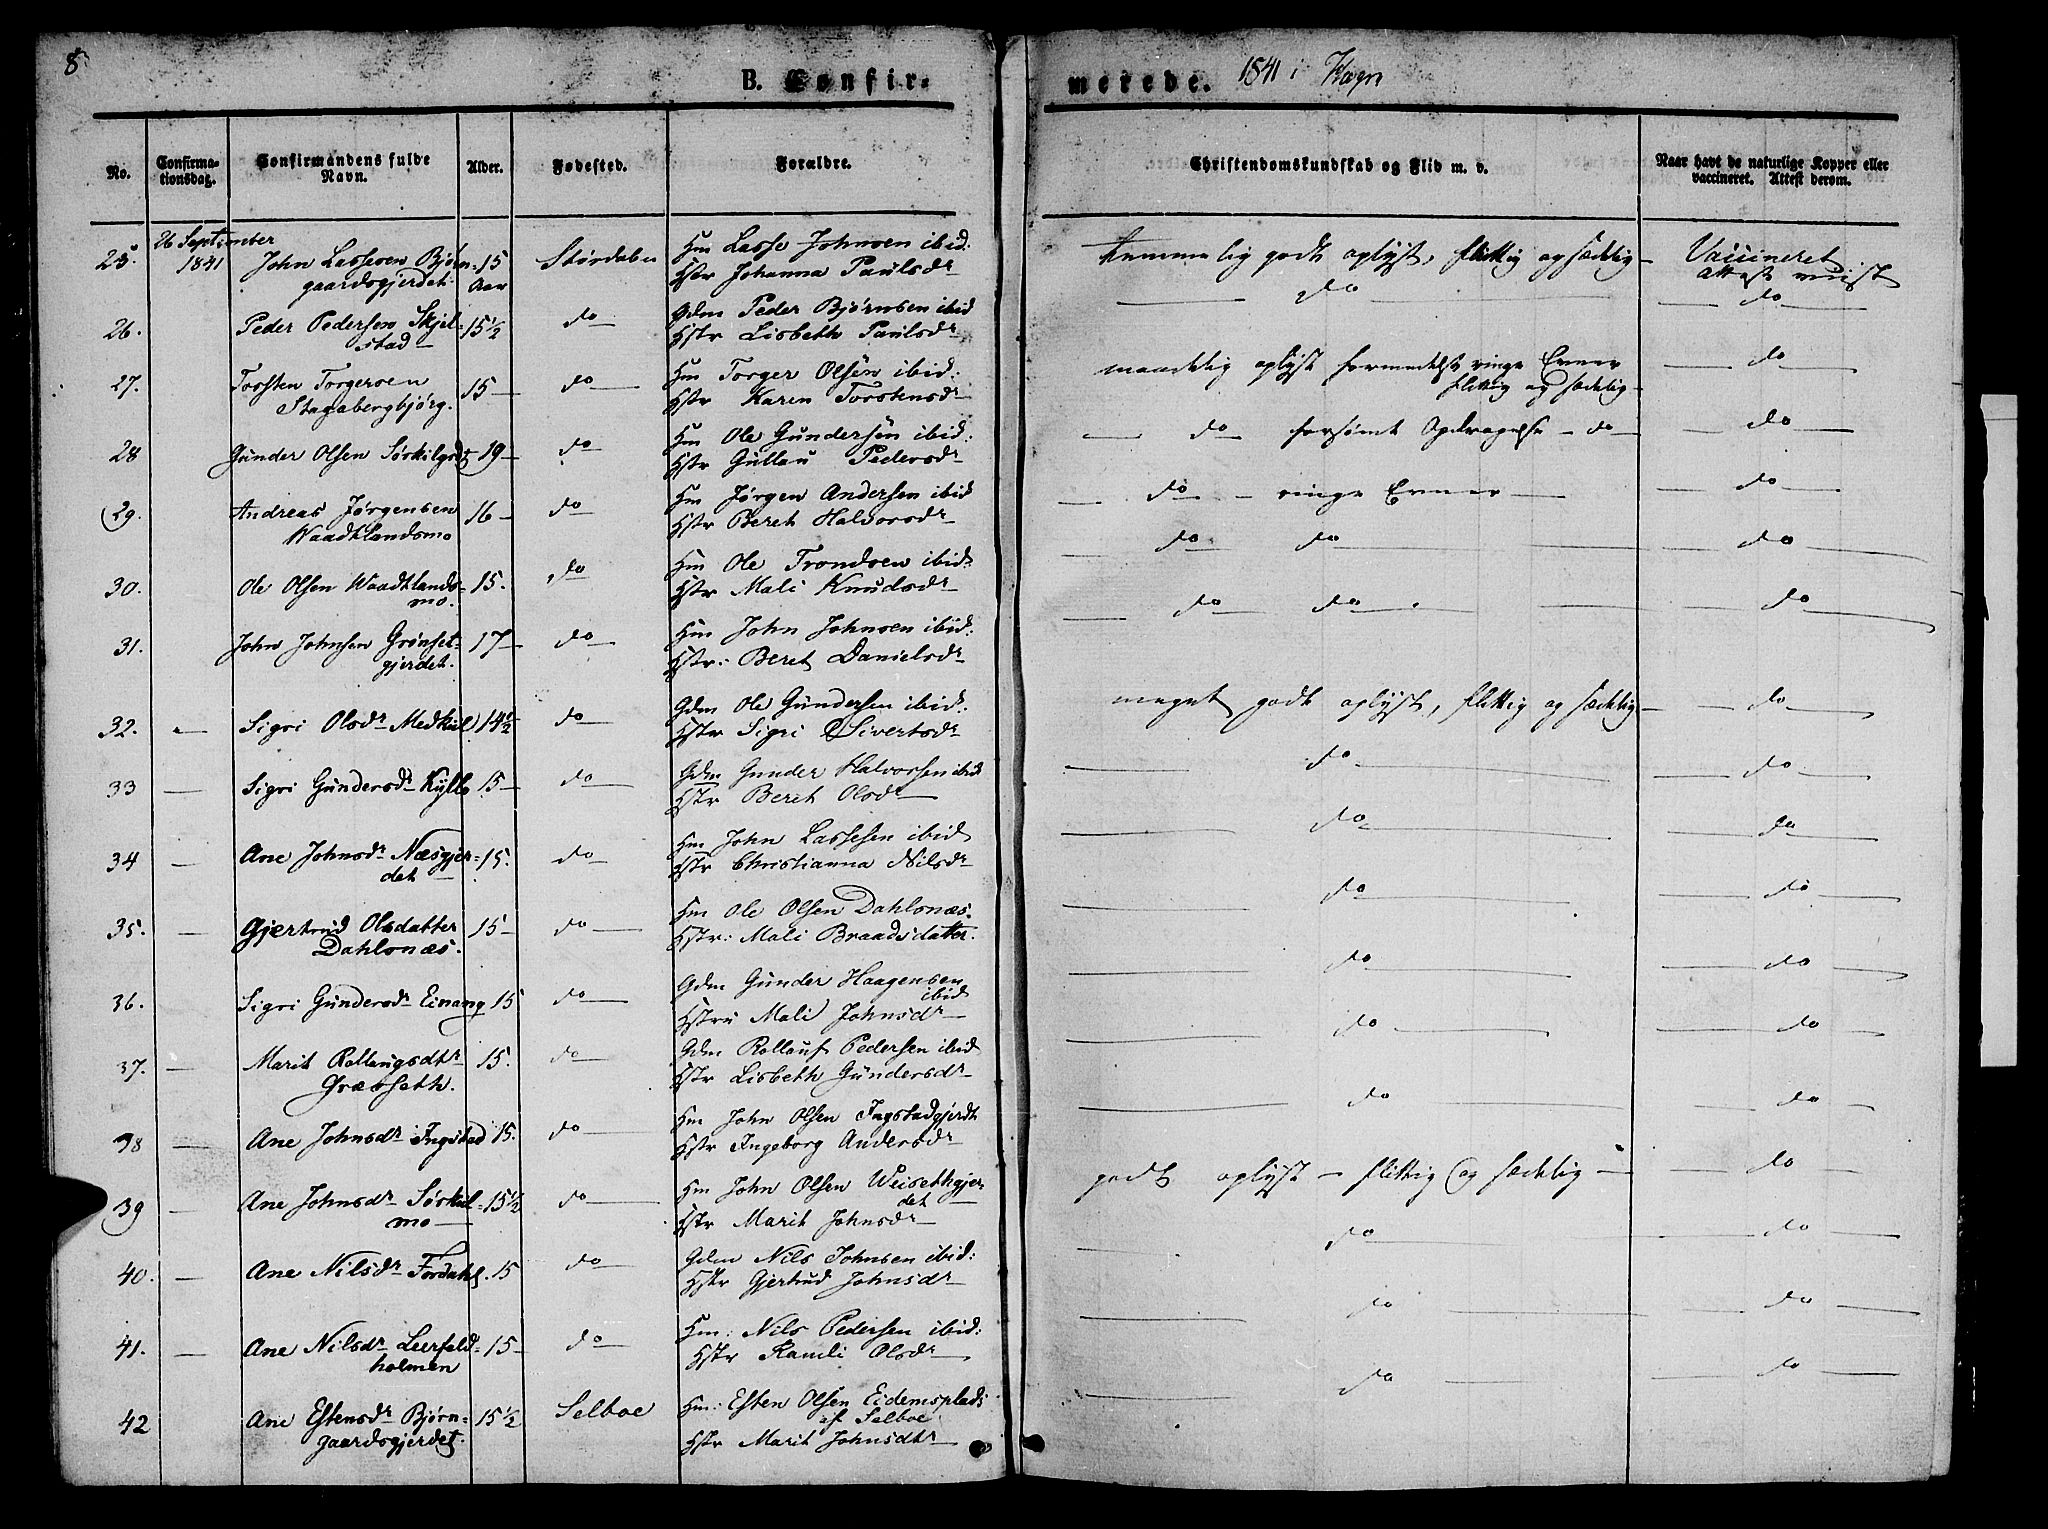 8
B. Confir-
merede. 1841 i Hegre
No.
Confirma-
tionsdag.
Confirmandens fulde
Navn.
Alder.
Fødested.
Forældre.
Christendomskundskab og Flid m. v.
Naar havt de naturlige Kopper eller
vaccineret. Attest derom.
26 September
25. 1841 John Lassesen Bjørn= 15 Størdalen Hm Lasse Johnsen ibid: temmelig godt oplyst, flittig og sædelig — Vaccineret
gaardsgjerdet. Aar Hstr Johanna Paulsdr attest viist
26. Peder Pedersen Skjel= 15 1/2 do Gdm Peder Bjørnsen ibid do do
stad Hstr Lisbeth Paulsdr
27. Torsten Torgersen 15 do Hm Torger Olsen ibid: maadelig oplyst formedelst ringe Evner do
Stagabergbjørg. Hstr Karen Torstensdr flittig og sædelig
28 Gunder Olsen Sørkilgrdt 19 do Hm Ole Gundersen ibid: do forsømt Opdragelse do do
Hstr Gullau Pedersdr
29. Andreas Jørgensen 16 do Hm Jørgen Andersen ibid do ringe Evner do
Waadtlandsmo Hstr Beret Halvorsdr
30. Ole Olsen Waadtlands= 15. do Hm Ole Trondsen ibid do do do
mo. Hstr Mali Knudsdr
31. John Johnsen Grønset= 17 do Hm John Johnsen ibid: do do do
gjerdet. Hstr: Beret Danielsdr
32. Sigri Olsdr Medkiil 14 1/2 do Gdm Ole Gundersen ibid: meget godt oplyst, flittig og sædelig do
Hstr Sigri Sivertsdr
33 Sigri Gundersdr Kyllo 15 do Gdm Gunder Halvorsen ibid do do
Hstr Beret Olsdr
34 Ane Johnsdr Næsgjer= 15. do Hm John Lassesen ibid do do
det Hstr Christianna Nilsdr
35. Gjertrud Olsdatter 15 do Hm Ole Olsen Dahlsnæs. do do
Dahlsnæs. Hstr: Mali Braadsdatter.
36. Sigri Gundersdr Einang 15 do Gdm Gunder Haagensen do do
ibid
Hstru Mali Johnsdr
37. Marit Rollaugsdtr 15. do Gdm Rollauf Pedersen ibid do do
Græsseth. Hstr Lisbeth Gundersdr
38 Ane Johnsdr Ingstad 15. do Hm John Olsen Ingstadgjerdt do do
Hstr Ingeborg Andersdr
39 Ane Johnsdr Sørkiil= 15 1/2 do Hm John Olsen Weisethgjer godt oplyst — flittig og sædelig — do
mo det
Hstr Marit Johnsdr
40. Ane Nilsdr Fordahl. 15 do Gdm Nils Johnsen ibid: do do
Hstr Gjertrud Johnsdr
41. Ane Nilsdr Leerfald= 15 do Hm: Nils Pedersen ibid: do do
holmen Hstr Ramli Olsdr
42 Ane Estensdr Bjørn= 15 1/2 Selboe Hm: Esten Olsen Eidemsplads do do
gaardsgjerdet. af Selboe
Hstr Marit Johnsdtr